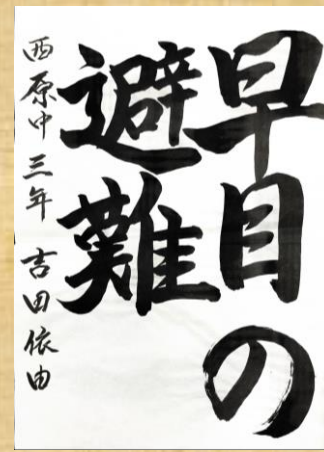 早目の
避難
西原中三年 吉田依由